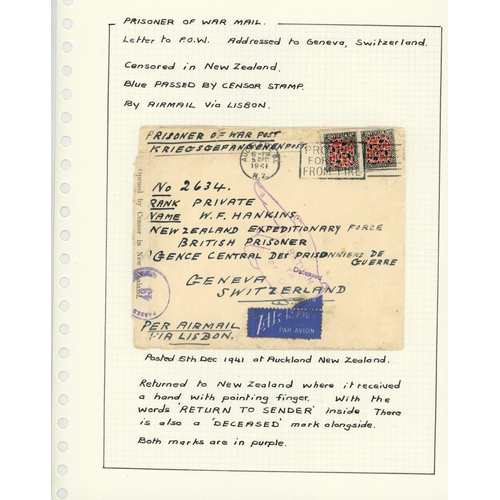 PRISONER OF WAR MAIL.
Letter to P.O.W. Addressed to Geneva, Switzerland.
Censored in New Zealand.
Blue PASSED BY CENSOR STAMP.
By AIRMAIL Via LISBON.
PRISONER OF WAR POST
KRIEGSGEFANGENENPOST
1941
N.Z.
PRODUCE
FOR
FROM FIRE
No 2634.
RANK PRIVATE
NAME W. F. HANKINS,
NEW ZEALAND EXPEDITIONARY FORCE
BRITISH PRISONER
AGENCE CENTRAL DES PRISONNIERS DE
GUERRE
GENEVA
SWITZERLAND
Deceased
Censor in New
PASSED
AIR MAIL
PAR AVION
PER AIRMAIL
VIA LISBON.
Posted 5th Dec 1941 at Auckland New Zealand.
Returned to New Zealand where it received
a hand with pointing finger. With the
words 'RETURN TO SENDER' Inside There
is also a 'DECEASED' mark alongside.
Both marks are in purple.